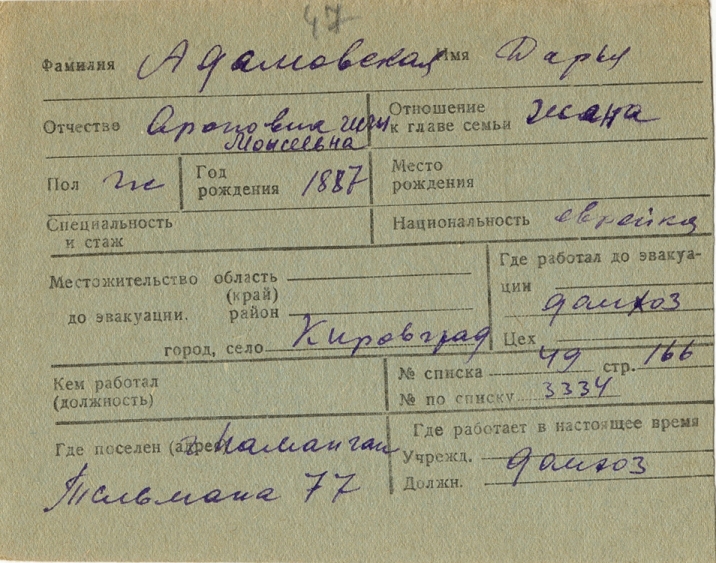 47
Фамилия Адамовская Имя Дарья
Отчество Ароновна или Отношение к главе семьи жана
Моисеевна
Пол ж Год рождения 1887 Место рождения
Специальность и стаж Национальность еврейка
Местожительство область
(край)
до эвакуации. район
город, село Кировград
Где работал до эвакуа-
ции
домхоз
Цех
Кем работал
(должность)
№ списка 49 стр. 166
№ по списку 3334
Где поселен (адрес) г Наманган
Тельмана 77
Где работает в настоящее время
Учрежд.
домхоз
Должн.